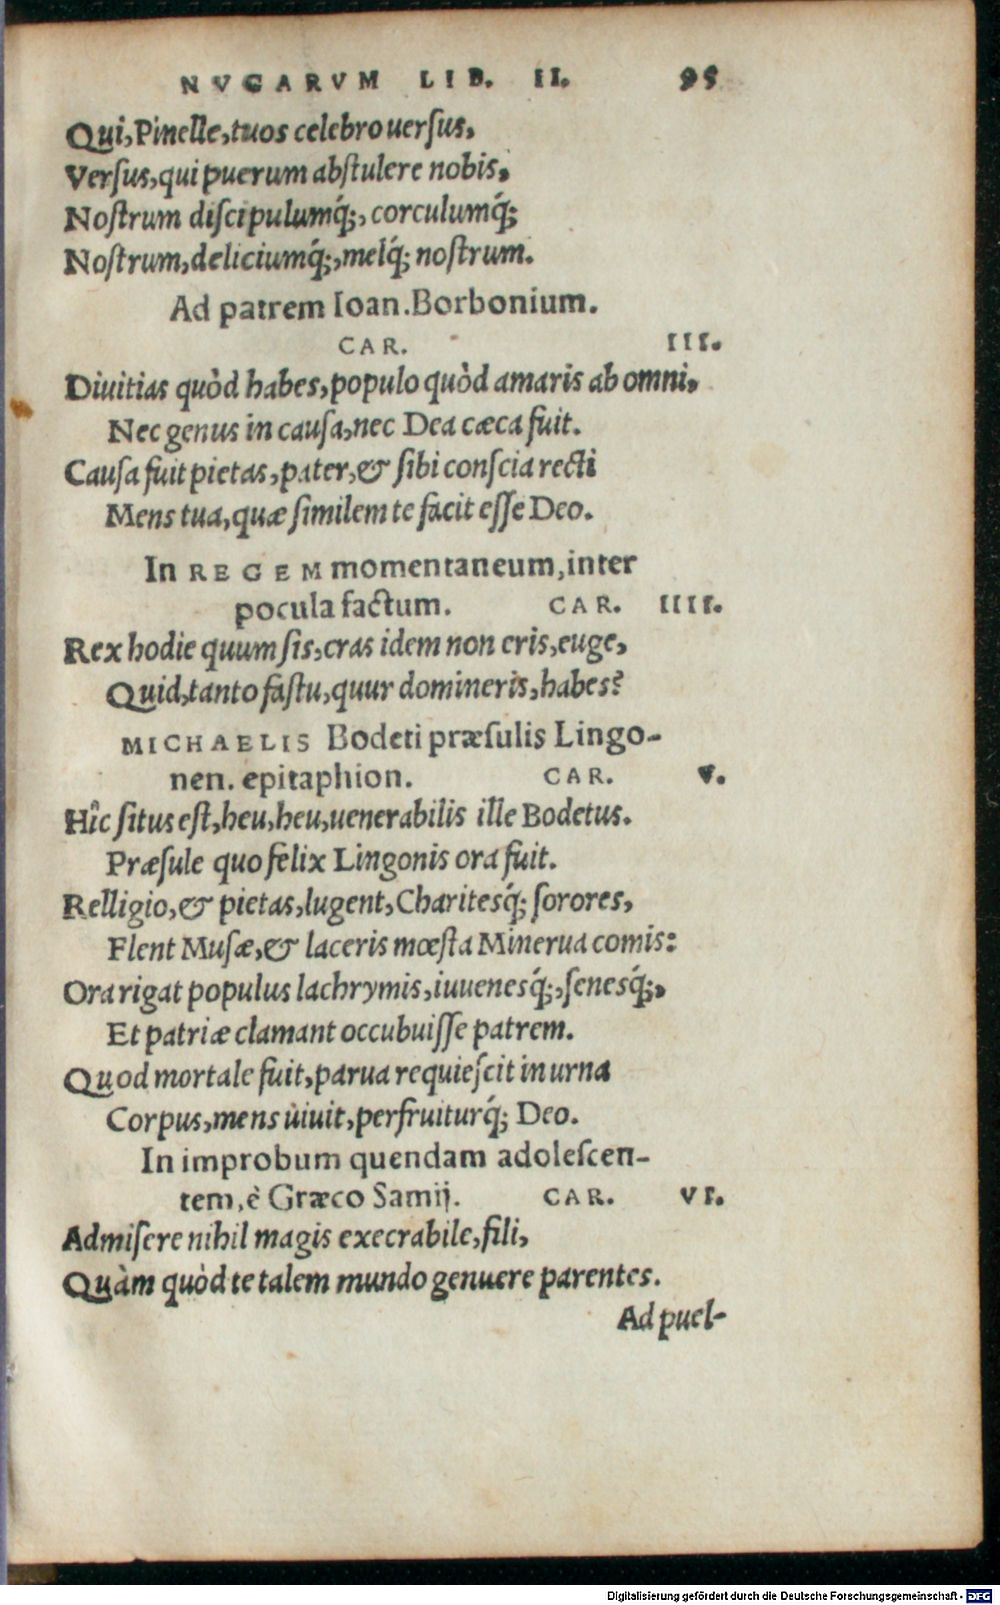 NVGARVM LIB. II. 95
Qui, Pinelle, tuos celebro uersus,
Versus, qui puerum abstulere nobis,
Nostrum discipulumq́;, corculumq́;
Nostrum, deliciumq́;, melq́; nostrum.
Ad patrem Ioan. Borbonium.
CAR. III.
Diuitias quòd habes, populo quòd amaris ab omni,
Nec genus in causa, nec Dea cæca fuit.
Causa fuit pietas, pater, & sibi conscia recti
Mens tua, quæ similem te facit esse Deo.
In REGEM momentaneum, inter
pocula factum. CAR. IIII.
Rex hodie quum sis, cras idem non eris, euge,
Quid, tanto fastu, quur domineris, habes?
MICHAELIS Bodeti præsulis Lingo-
nen. epitaphion. CAR. V.
Hîc situs est, heu, heu, uenerabilis ille Bodetus.
Præsule quo felix Lingonis ora fuit.
Relligio, & pietas, lugent, Charitesq́; sorores,
Flent Musæ, & laceris mœsta Minerua comis:
Ora rigat populus lachrymis, iuuenesq́;, senesq́;,
Et patriæ clamant occubuisse patrem.
Quod mortale fuit, parua requiescit in urna
Corpus, mens ùiuit, perfruiturq́; Deo.
In improbum quendam adolescen-
tem, è Græco Samij. CAR. VI.
Admisere nihil magis execrabile, fili,
Quàm quòd te talem mundo genuere parentes.
Ad puel-
Digitalisierung gefördert durch die Deutsche Forschungsgemeinschaft - DFG